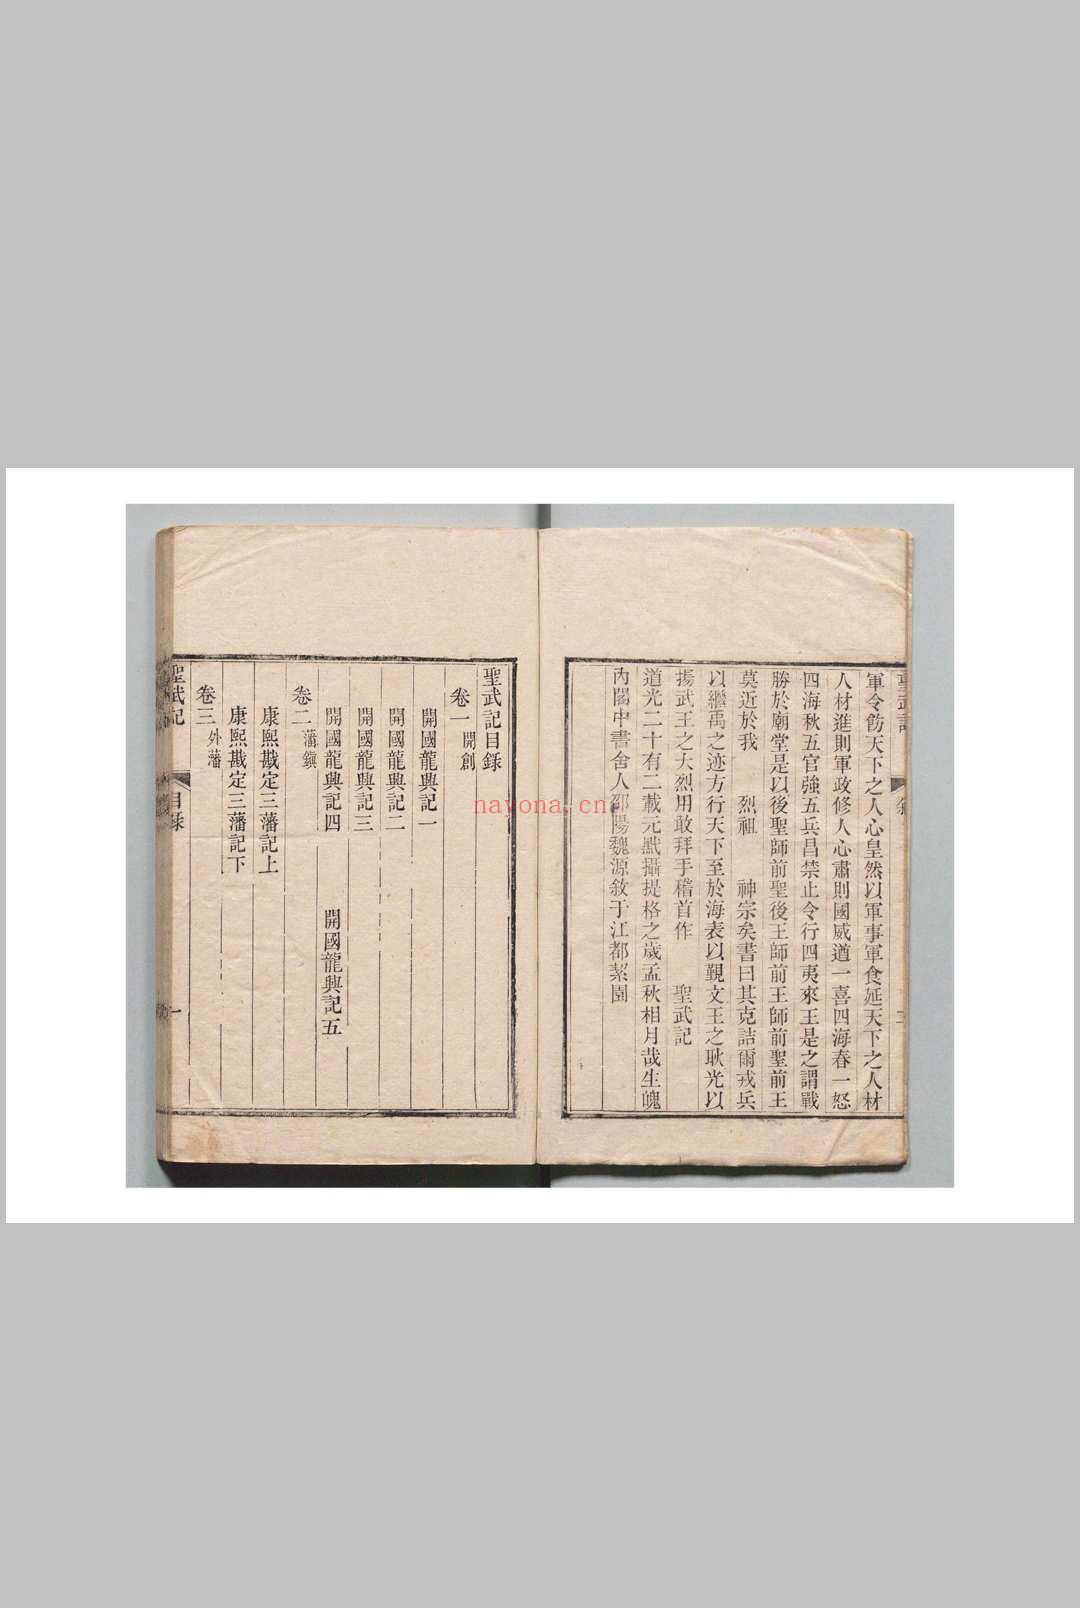 軍令飭天下之人心皇然以軍事軍食延天下之人材
人材進則軍政修人心肅則國威遒一喜四海春一怒
四海秋五官強五兵昌禁止令行四夷來王是之謂戰
勝於廟堂是以後聖師前聖後王師前王師前聖前王
莫近於我 烈祖 神宗矣書曰其克詰爾戎兵
以繼禹之迹方行天下至於海表以覲文王之耿光以
揚武王之大烈用敢拜手稽首作 聖武記
道光二十有二載元黓攝提格之歲孟秋相月哉生魄
內閣中書舍人邵陽魏源敘于江都絜園
聖武記目錄
卷一 開創
開國龍興記一
開國龍興記二
開國龍興記三
開國龍興記四 開國龍興記五
卷二 藩鎮
康熙戡定三藩記上
康熙戡定三藩記下
卷三 外藩
聖武記 目錄 一
nayona.cn